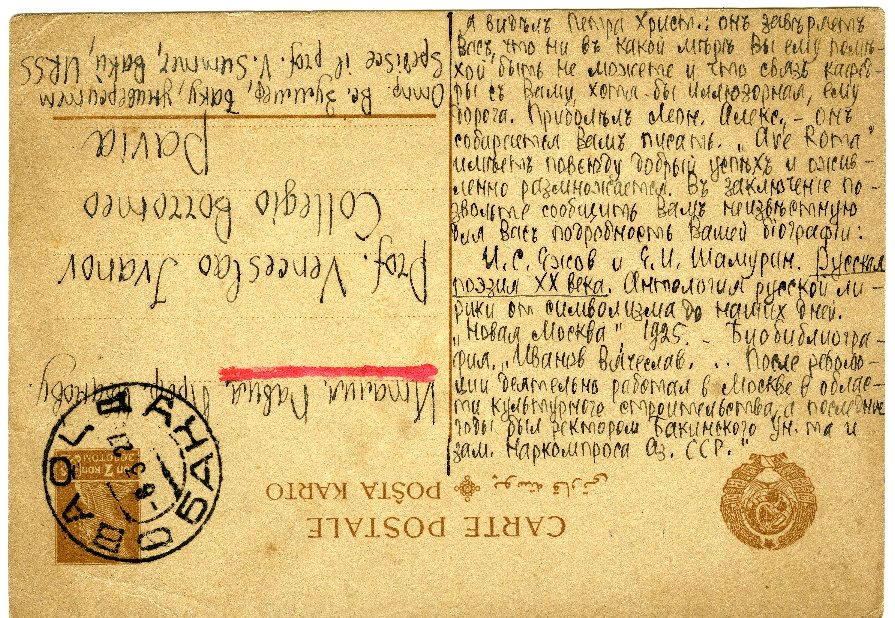 я видѣлъ Петра Христ.: онъ завѣряетъ
Васъ, что ни въ какой мѣрѣ Вы ему помѣ-
хой быть не можете и что связь кафед-
ры съ Вами, хотя-бы иллюзорная, ему
дорога. Приболѣлъ Леон. Алекс. – онъ
собирается Вамъ писать. „Ave Roma"
имѣетъ повсюду добрый успѣхъ и ожив-
ленно размножается. Въ заключеніе по-
звольте сообщить Вамъ неизвѣстную
для Васъ подробность Вашей біографіи:
И. С. Ежов и Е. И. Шамурин. Русская
поэзия XX века. Антология русской ли-
рики от символизма до наших дней.
„Новая Москва", 1925. – Биобиблиогра-
фия. „Иванов Вячеслав. .. После револю-
ции деятельно работал в Москве в облас-
ти культурного строительства, а последние
годы был ректором Бакинского Ун.та и
зам. Наркомпроса Аз. ССР."
CARTE POSTALE
POŠTA KARTO
Италия. Павия. Проф. Иванову.
Prof. Venceslao Ivanov
Collegio Borromeo
Pavia
Отпр. Вс. Зуммер, Баку, Университет
Spedisce il prof. V. Summer, Baku, URSS
БАКУ
-8 3 27